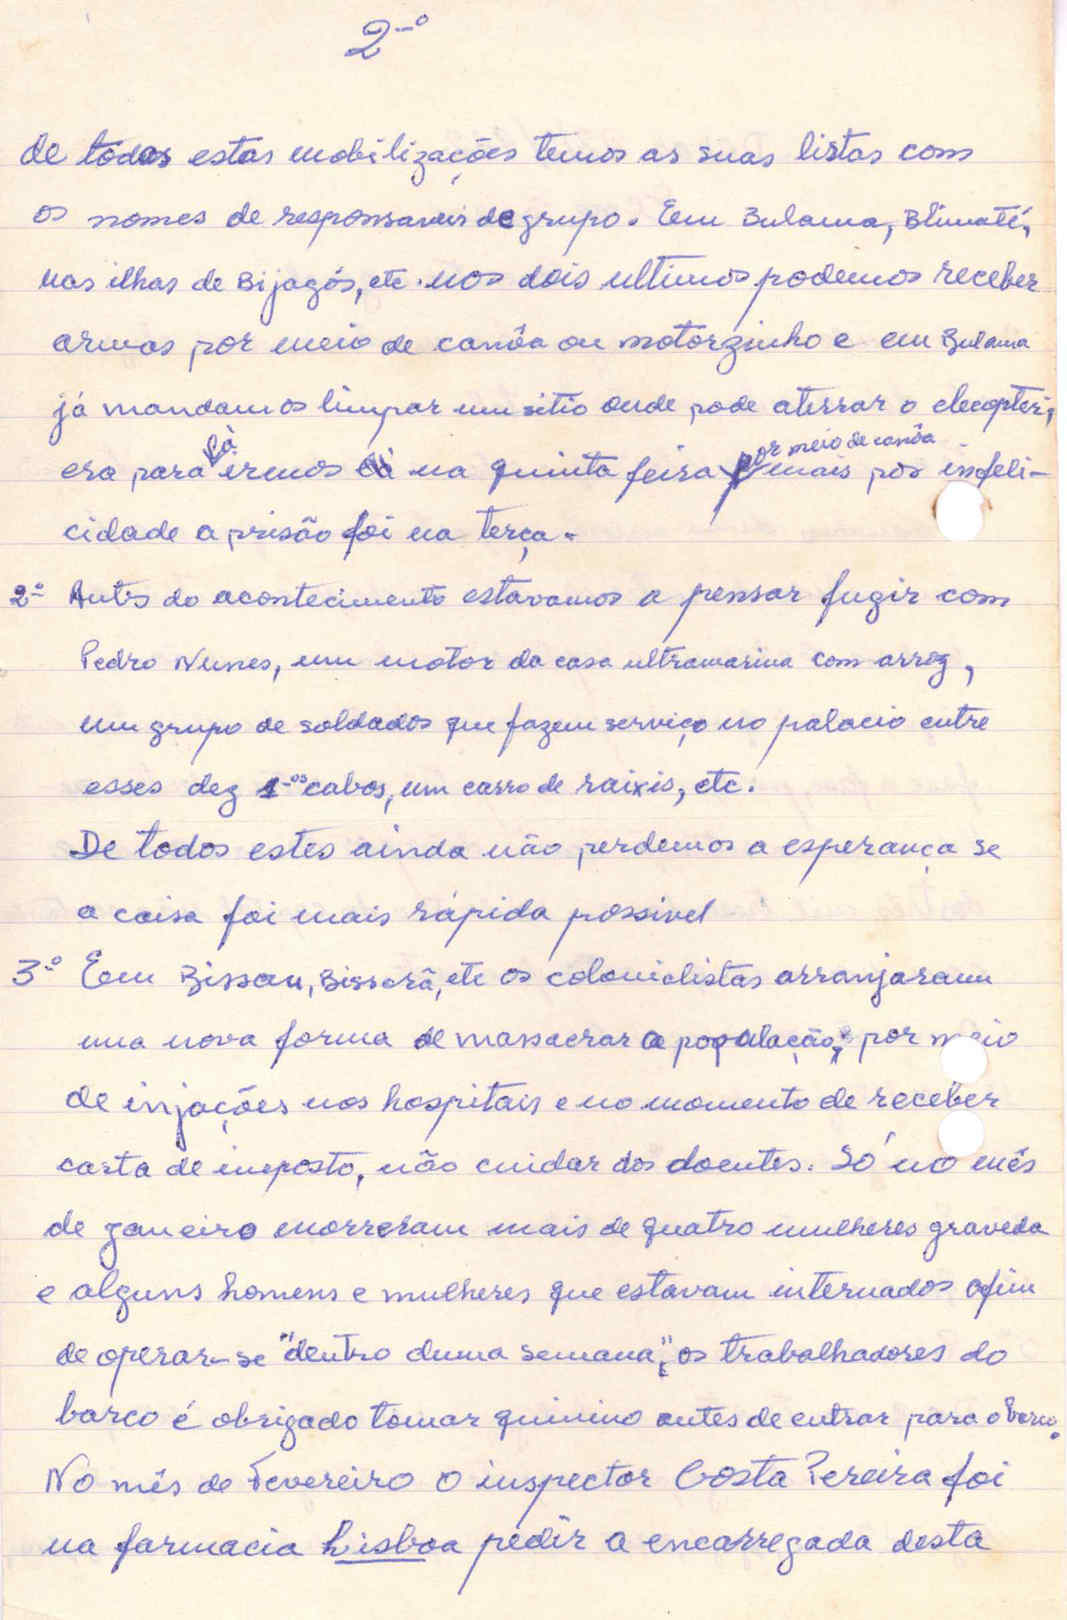 2-º
de tôdas estas mobilizações temos as suas listas com
os nomes de responsaveis de grupo. Eem Bulama, Blimaté,
nas ilhas de Bijagós, etc. nos dois ultimos podemos receber
armas por meio de canôa ou motorzinho e em Bulama
já mandamos limpar um sitio onde pode aterrar o elecopteri,
por meio de canôa
era para lá irmos na quinta feira mais por infeli-
cidade a prisão foi na terça.
2-º Antes do acontecimento estavamos a pensar fugir com
Pedro Nunes, um motor da casa ultramarina com arroz,
um grupo de soldados que fazem serviço no palacio entre
esses dez 1-os cabos, um carro de raixis, etc.
De todos estes ainda não perdemos a esperança se
a coisa foi mais rápida possivel
3-º Eem Bissau, Bissorã, etc os colonialistas arranjaram
uma nova forma de massacrar a população; por meio
de injações nos hospitais e no momento de receber
carta de imposto, não cuidar dos doentes. Só no mês
de janeiro morreram mais de quatro mulheres graveda
e alguns homens e mulheres que estavam internados afim
de operar-se "dentro duma semana", os trabalhadores do
barco é obrigado tomar quinino antes de entrar para o barco.
No mês de Fevereiro o inspector Costa Pereira foi
na farmacia Lisboa pedir a encarregada desta